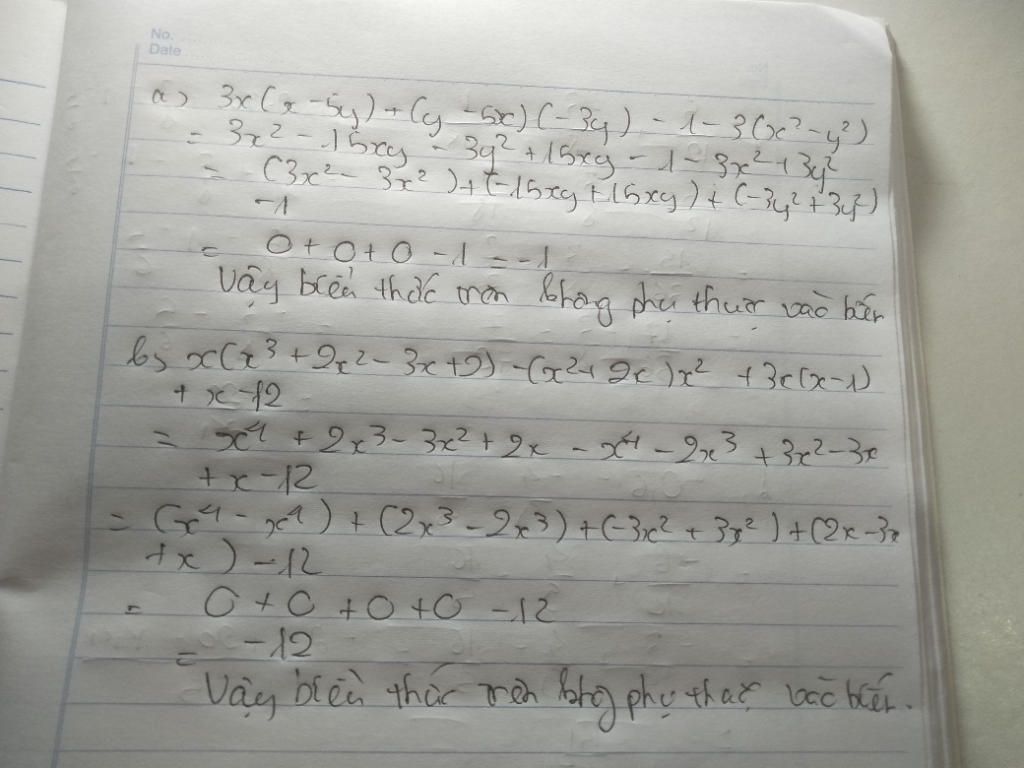 No.
Date
a) 3x(x - 5y) + (y - 5x)(-3y) - 1 - 3(x² - y²)
= 3x² - 15xy - 3y² + 15xy - 1 - 3x² + 3y²
= (3x² - 3x²) + (-15xy + 15xy) + (-3y² + 3y²)
-1
= 0 + 0 + 0 - 1 = -1
Vậy biểu thức trên không phụ thuộc vào biến
b) x(x³ + 2x² - 3x + 2) - (x² + 2x)x² + 3x(x - 1)
+ x - 12
= x⁴ + 2x³ - 3x² + 2x - x⁴ - 2x³ + 3x² - 3x
+ x - 12
= (x⁴ - x⁴) + (2x³ - 2x³) + (-3x² + 3x²) + (2x - 3x
+ x) - 12
= 0 + 0 + 0 + 0 - 12
= -12
Vậy biểu thức trên không phụ thuộc vào biến.